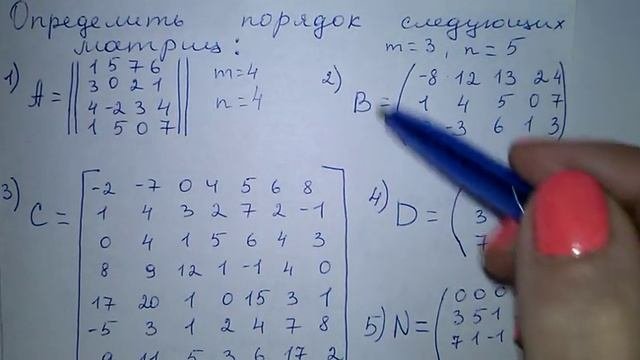 Определить порядок следующих
матриц:
m=3, n=5
1) A = || 1 5 7 6 ||
3 0 2 1
4 -2 3 4
1 5 0 7
m=4
n=4
2) B = ( -8 12 13 2 4 )
1 4 5 0 7
-3 6 1 3
3) C = [ -2 -7 0 4 5 6 8 ]
1 4 3 2 7 2 -1
0 4 1 5 6 4 3
8 9 12 1 -1 4 0
17 20 1 0 15 3 1
-5 3 1 2 4 7 8
9 11 5 3 6 17 2
4) D = (
3
7
5) N = ( 0 0 0
3 5 1
7 1 -1